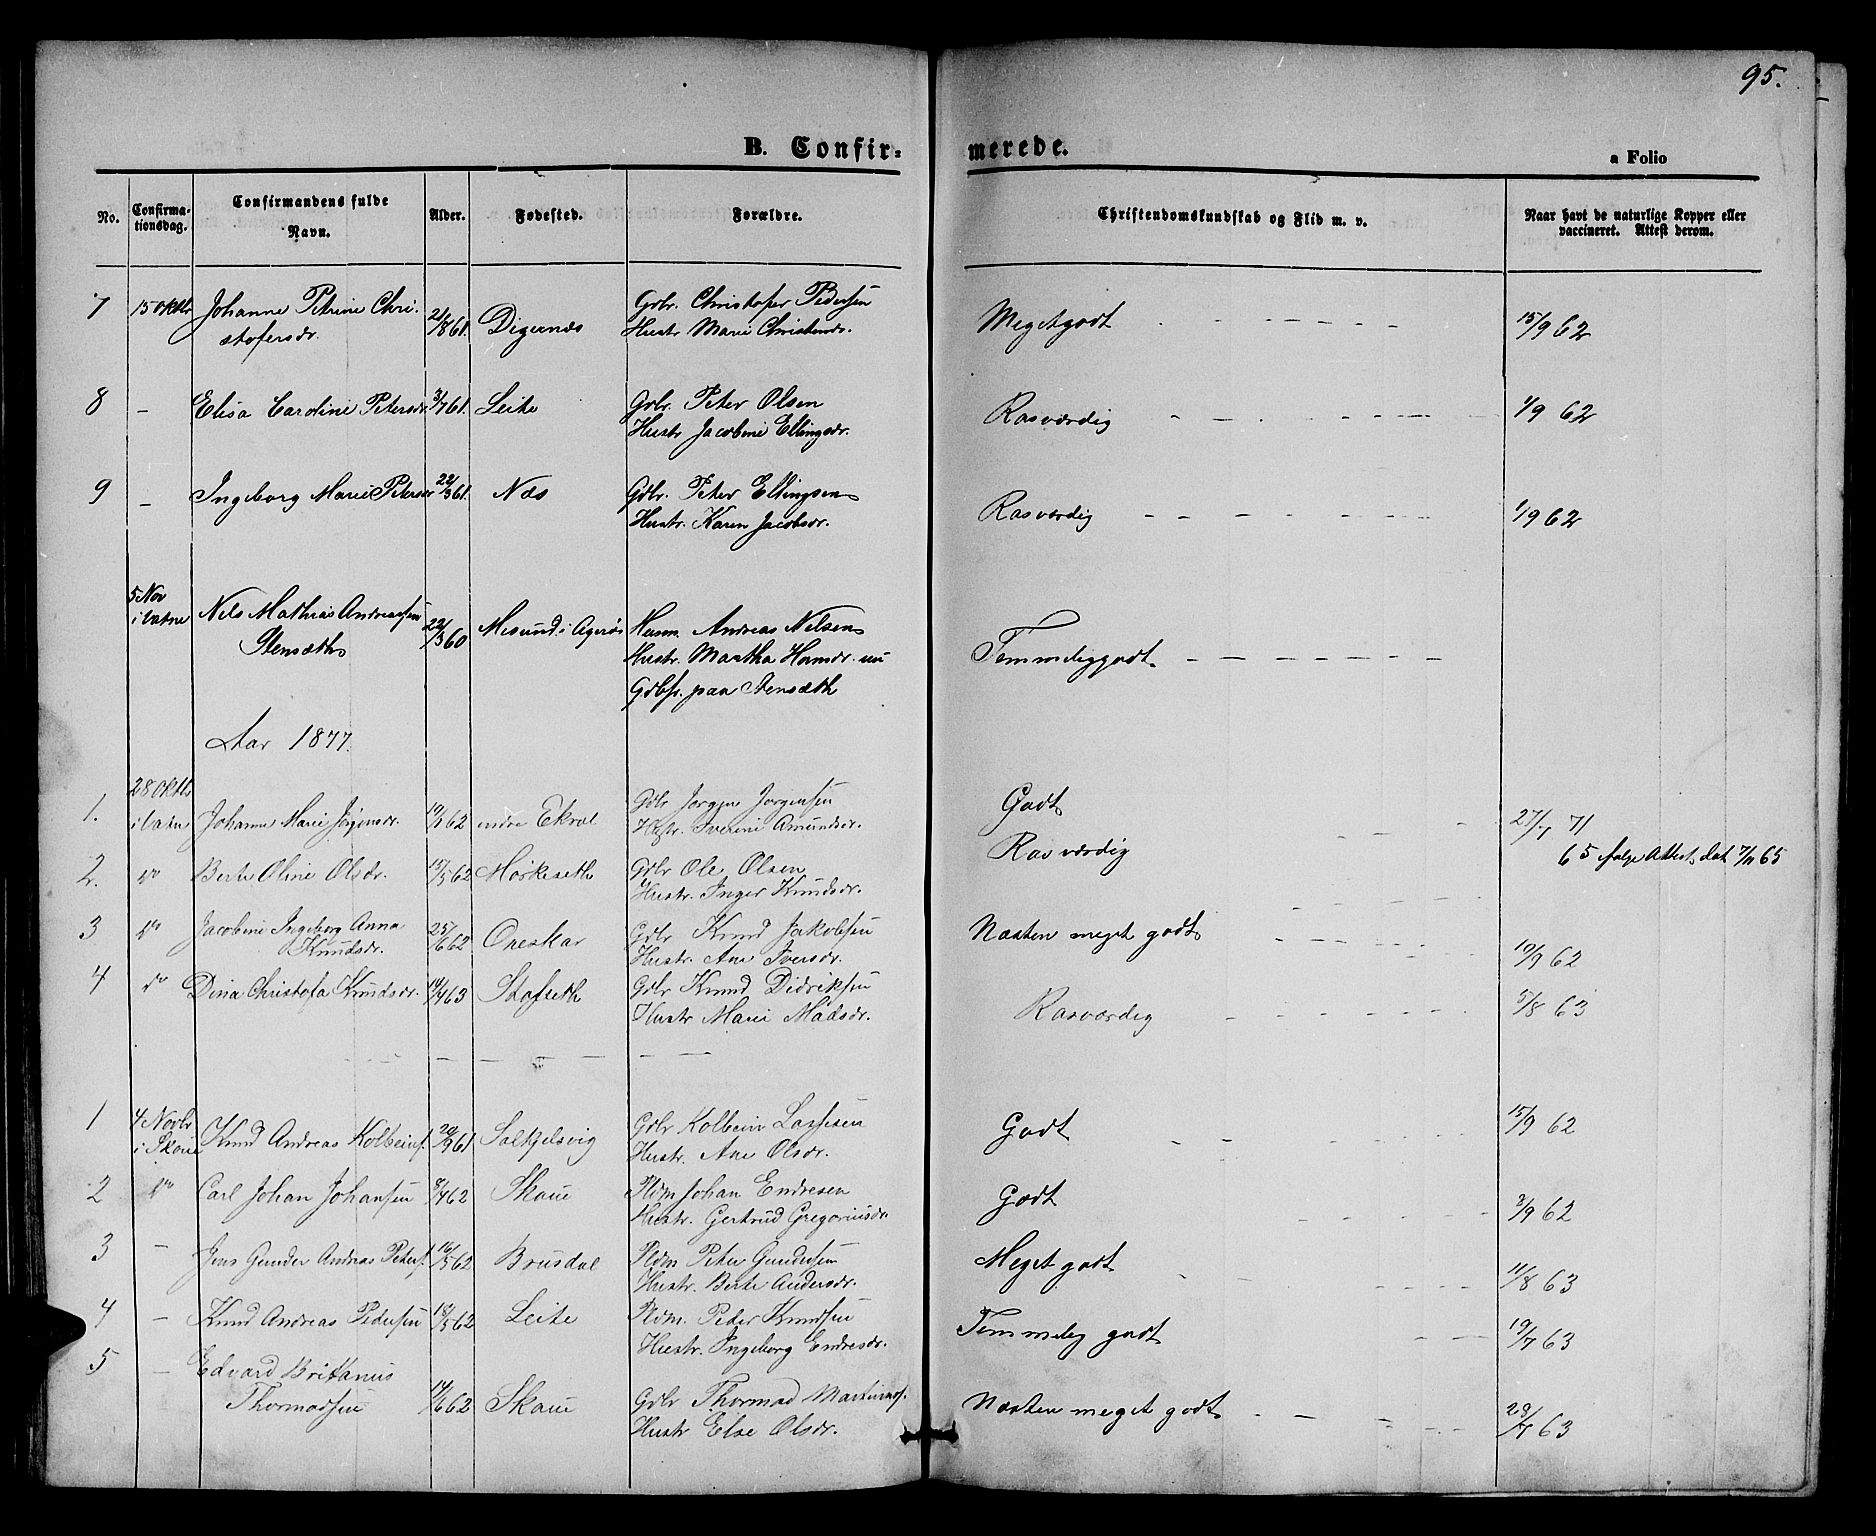 95.
B. Confir= merede.
a Folio
No. Confirma-tionsdag. Confirmandens fulde Navn. Alder. Fødested. Forældre. Christendomskundskab og Flid m. v. Naar havt de naturlige Kopper eller vaccineret. Attest derom.
7 15 Oktbr Johanne Petrine Chri- 21/8 61. Digernæs Gdbr. Christofer Pedersen Megetgodt 15/9 62
stofersdr. Hustr Marie Christensdr.
8 – Elisa Caroline Petersdr. 3/7 61. Leite Gdbr. Peter Olsen Rosværdig 1/9 62
Hustr Jacobine Ellingsdr.
9 – Ingeborg Marie Petersdr 22/3 61. Næs Gdbr. Peter Ellingsen Rosværdig 1/9 62
Hustr. Karen Jacobsdr.
5 Nov
i Vatne Nils Mathias Andreassen 22/3 60 Mesund i Agerøe Husm. Andreas Nilsen Temmeliggodt
Stensæth Hustr. Martha Hansdr. nu
Gdbfr. paa Stensæth
Aar 1877.
28 Oktbr Gdbr Jørgen Jørgensen Godt
1. i Vatne Johanne Marie Jörgensdr. 62 indre Ekrol Hustr. Iverine Amundsdr. 27/7 71
2. do Berte Oline Olsdr. 15/5 62 Mørkeseth Gdbr Ole Olsen Rosværdig 65 ifølge Attest dat 7/11 65
Hustr. Inger Knudsdr.
3 do Jacobine Ingeborg Anna 25/6 62 Oneskar Gdbr Knud Jakobsen Næsten meget godt 19/9 62
Knudsdr. Hustr. Ane Iversdr.
4 do Dina Christofa Knudsdr. 63 Stofseth Gdbr Knud Didriksen Rosværdig 5/8 63
Hustr Marie Madsdr.
1 4 Novbr Gdbr Kolbein Lassesen Godt 15/9 62
i Skoue Knud Andreas Kolbeins. 20/9 61 Solkjelsvig Hustr. Ane Olsdr.
2 do Carl Johan Johansen 8/4 62 Skoue Pldm Johan Endresen Godt 3/9 62
Hustr. Gertrud Gregoriusdr.
3 – Jens Gunder Andreas Peters. 16/5 62 Brusdal Pldm Peter Gundersen Meget godt 11/8 63
Hustr. Berte Andersdr.
4 – Knud Andreas Pedersen 18/5 62 Leite Pldm. Peder Knudsen Temmelig godt 19/7 63
Hustr. Ingeborg Endresdr.
5 – Edvard Britanus
Thormodsen 14/6 62 Skoue Gdbr Thormod Martinus. Næsten meget godt 29/7 63
Hustr Else Olsdr.